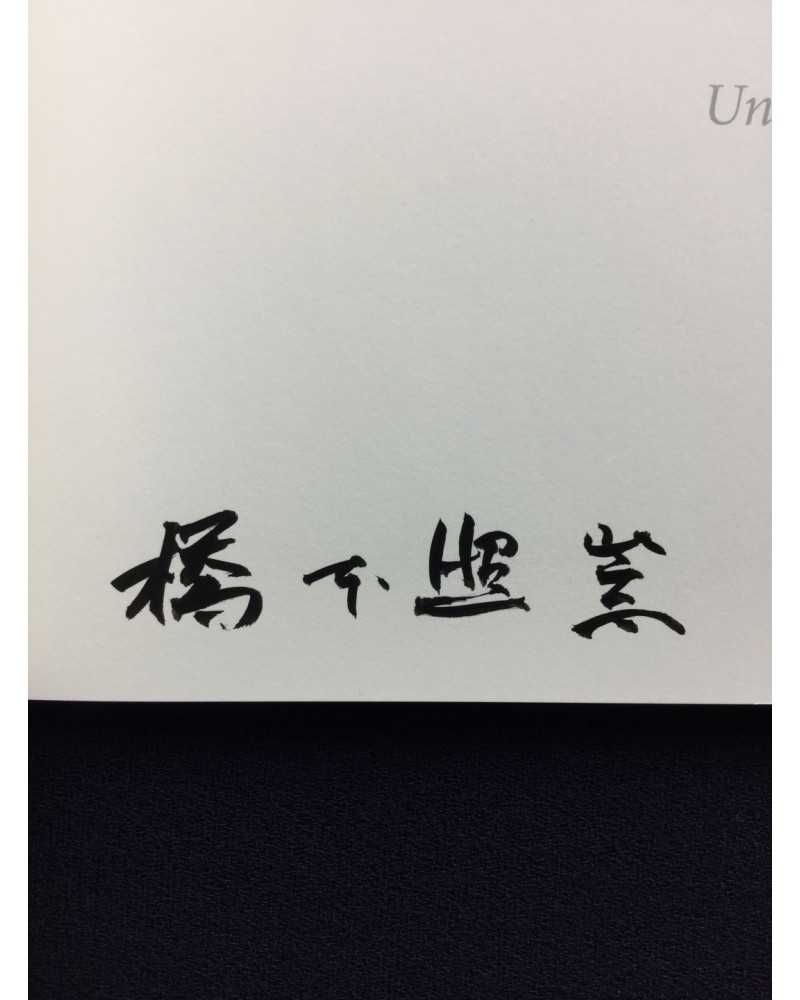 Un
橋本照嵩